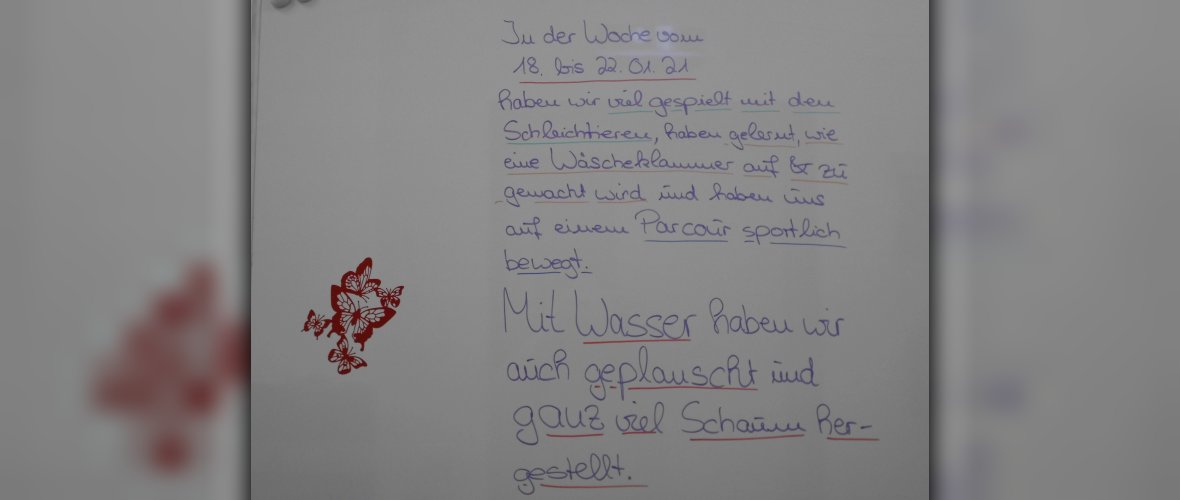 In der Woche vom
18. bis 22.01.21
haben wir viel gespielt mit den
Schleichtieren, haben gelernt, wie
eine Wäscheklammer auf & zu
gemacht wird und haben uns
auf einem Parcour sportlich
bewegt.
Mit Wasser haben wir
auch geplauscht und
ganz viel Schaum her-
gestellt.